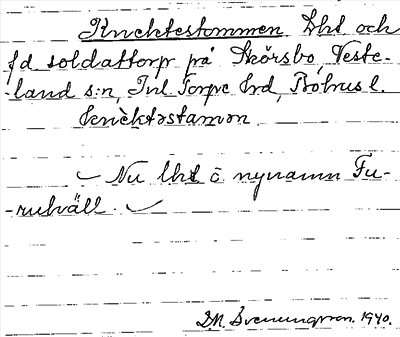 Knektestommen Lht och
fd soldattorp på Skörsbo, Veste-
-land s:n, Inl. Torpe hd, Bohus l.
knèktəstamən
Nu lht o nynamn Fu-
-rulväll.
D.M. Svenungsson. 1940.